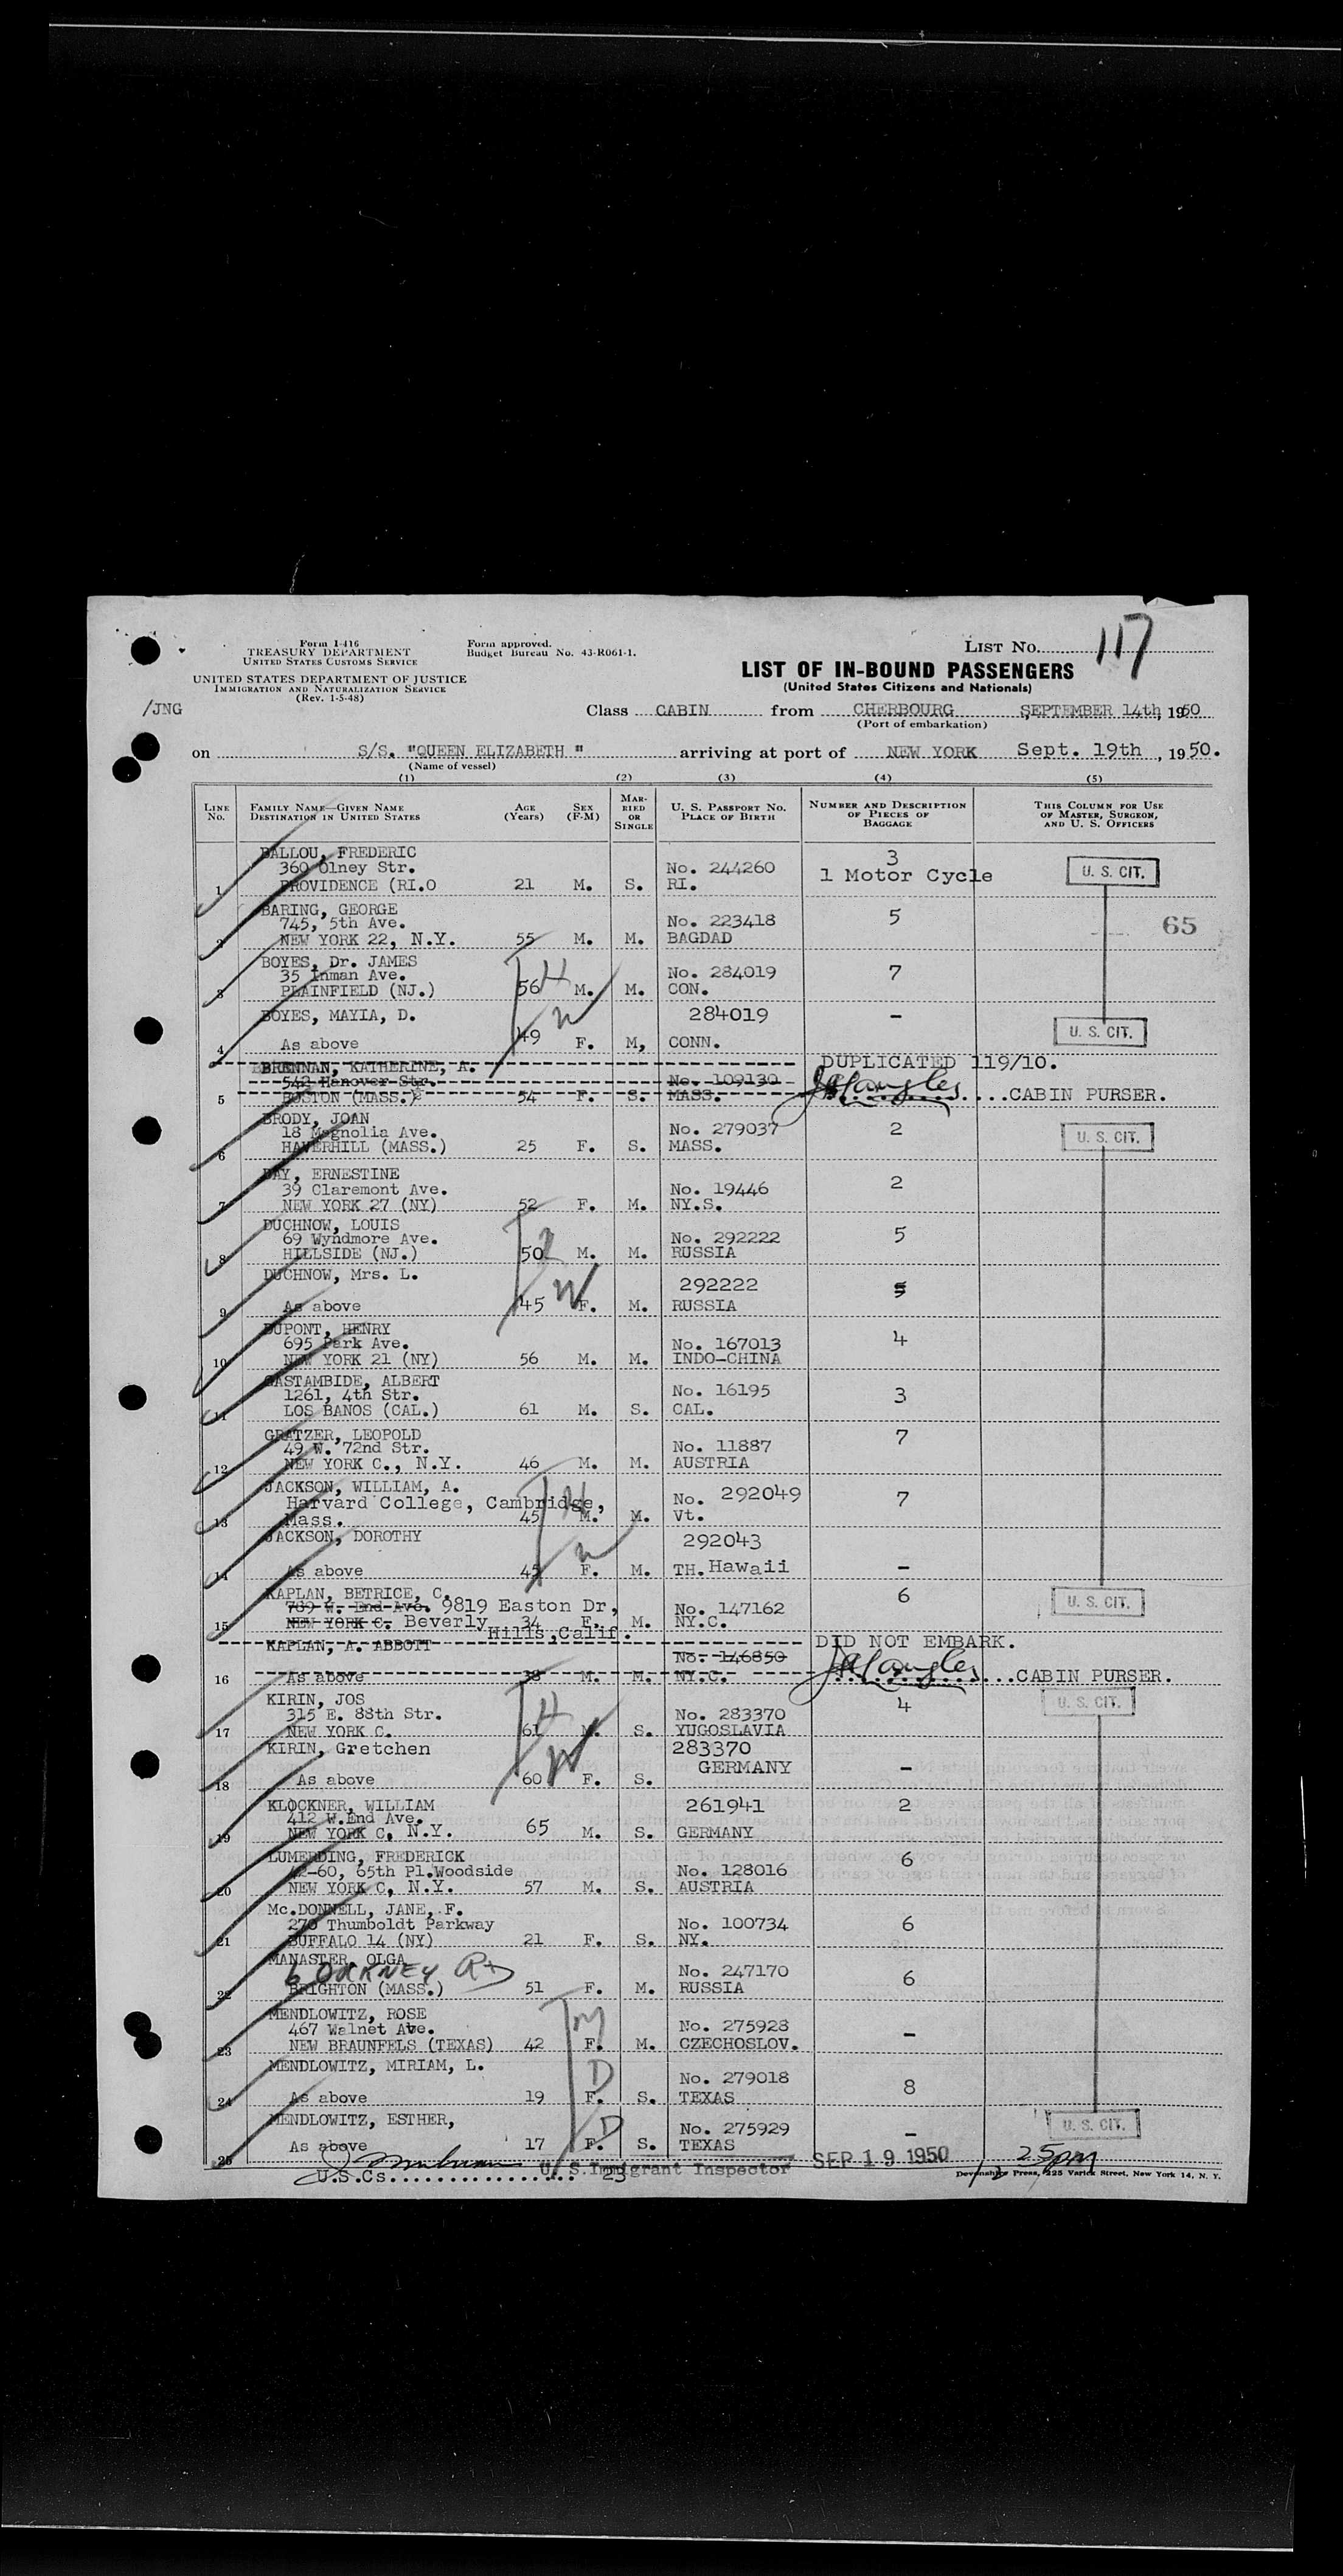 Form I-416
TREASURY DEPARTMENT
UNITED STATES CUSTOMS SERVICE
Form approved.
Budget Bureau No. 43-R061-1.
LIST No. 117
UNITED STATES DEPARTMENT OF JUSTICE
IMMIGRATION AND NATURALIZATION SERVICE
(Rev. 1-5-48)
LIST OF IN-BOUND PASSENGERS
(United States Citizens and Nationals)
/JNG
Class CABIN from CHERBOURG SEPTEMBER 14th, 1950
(Port of embarkation)
on S/S. "QUEEN ELIZABETH " arriving at port of NEW YORK Sept. 19th, 1950.
(Name of vessel)
(1) (2) (3) (4) (5)
LINE No. FAMILY NAME—GIVEN NAME DESTINATION IN UNITED STATES AGE (Years) SEX (F-M) MARRIED OR SINGLE U. S. PASSPORT No. PLACE OF BIRTH NUMBER AND DESCRIPTION OF PIECES OF BAGGAGE THIS COLUMN FOR USE OF MASTER, SURGEON, AND U. S. OFFICERS
BALLOU, FREDERIC 3
360 Olney Str. No. 244260 1 Motor Cycle U. S. CIT.
1 PROVIDENCE (RI.O 21 M. S. RI.
BARING, GEORGE 5
745, 5th Ave. No. 223418 65
2 NEW YORK 22, N.Y. 55 M. M. BAGDAD
BOYES, Dr. JAMES
35 Inman Ave. No. 284019 7
3 PLAINFIELD (NJ.) 56 M. M. CON.
H
W
BOYES, MAYIA, D. 284019 -
U. S. CIT.
4 As above 49 F. M, CONN.
BRENNAN, KATHERINE, A. DUPLICATED 119/10.
542 Hanover Str. No. 109130
5 BOSTON (MASS.) 54 F. S. MASS. ....CABIN PURSER.
BRODY, JOAN
18 Magnolia Ave. No. 279037 2 U. S. CIT.
6 HAVERHILL (MASS.) 25 F. S. MASS.
DAY, ERNESTINE
39 Claremont Ave. No. 19446 2
7 NEW YORK 27 (NY) 52 F. M. NY.S.
DUCHNOW, LOUIS
69 Wyndmore Ave. No. 292222 5
8 HILLSIDE (NJ.) 50 M. M. RUSSIA
W
DUCHNOW, Mrs. L. 292222
9 As above 45 F. M. RUSSIA
DUPONT, HENRY
695 Park Ave. No. 167013 4
10 NEW YORK 21 (NY) 56 M. M. INDO-CHINA
GASTAMBIDE, ALBERT
1261, 4th Str. No. 16195 3
11 LOS BANOS (CAL.) 61 M. S. CAL.
GRATZER, LEOPOLD 7
49 W. 72nd Str. No. 11887
12 NEW YORK C., N.Y. 46 M. M. AUSTRIA
JACKSON, WILLIAM, A.
Harvard College, Cambridge, No. 292049 7
13 Mass. 45 M. M. Vt.
H
W
JACKSON, DOROTHY 292043
14 As above 45 F. M. TH. Hawaii -
KAPLAN, BETRICE, C. 6
789 W. End Ave. 9819 Easton Dr, No. 147162 U. S. CIT.
15 NEW YORK C. Beverly 34 F. M. NY.C.
Hills, Calif.
KAPLAN, A. ABBOTT DID NOT EMBARK.
No. 146850
16 As above 38 M. M. NY.C. ....CABIN PURSER.
KIRIN, JOS
315 E. 88th Str. No. 283370 4 U. S. CIT.
17 NEW YORK C. 61 M. S. YUGOSLAVIA
H
W
KIRIN, Gretchen 283370
GERMANY -
18 As above 60 F. S.
KLOCKNER, WILLIAM 261941 2
412 W.End Ave.
19 NEW YORK C, N.Y. 65 M. S. GERMANY
LUMERDING, FREDERICK
42-60, 65th Pl.Woodside No. 128016 6
20 NEW YORK C, N.Y. 57 M. S. AUSTRIA
Mc.DONNELL, JANE, F.
270 Thumboldt Parkway No. 100734 6
21 BUFFALO 14 (NY) 21 F. S. NY.
MANASTER, OLGA
6 ORKNEY Rd No. 247170 6
22 BRIGHTON (MASS.) 51 F. M. RUSSIA
MENDLOWITZ, ROSE
467 Walnet Ave. No. 275928 -
23 NEW BRAUNFELS (TEXAS) 42 F. M. CZECHOSLOV.
M
D
D
MENDLOWITZ, MIRIAM, L. No. 279018 8
24 As above 19 F. S. TEXAS
MENDLOWITZ, ESTHER, No. 275929 - U. S. CIT.
25 As above 17 F. S. TEXAS
U.S.Cs. 23 U. S. Immigrant Inspector SEP 19 1950
Devonshire Press, 225 Varick Street, New York 14, N. Y.